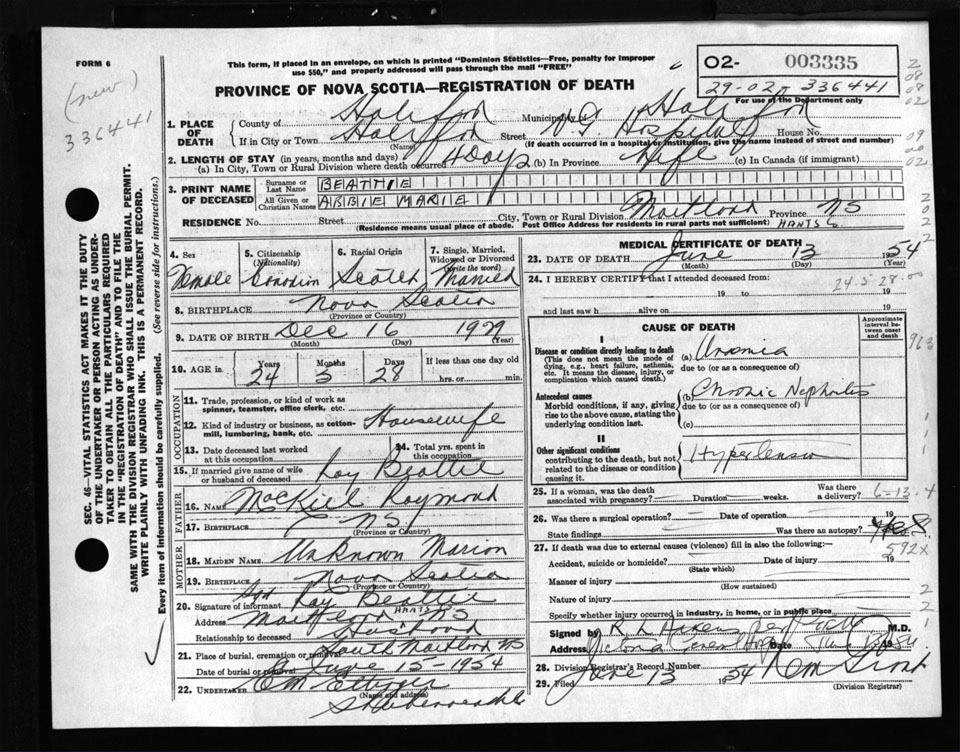 FORM 6
This form, if placed in an envelope, on which is printed "Dominion Statistics—Free, penalty for improper
use $50," and properly addressed will pass through the mail "FREE"
PROVINCE OF NOVA SCOTIA—REGISTRATION OF DEATH
O2- 003335
29-02- 336441
For use of the Department only
(new)
336441
1. PLACE OF DEATH
County of Halifax Municipality of Halifax
If in City or Town Halifax Street V.G. Hospital House No.
(Name) (If death occurred in a hospital or institution, give the name instead of street and number)
2. LENGTH OF STAY (in years, months and days)
(a) In City, Town or Rural Division where death occurred 4 Days (b) In Province Life (c) In Canada (if immigrant)
3. PRINT NAME OF DECEASED
Surname or Last Name BEATTIE
All Given or Christian Names ABBIE MARIE
RESIDENCE No. Street City, Town or Rural Division Maitland Province NS
(Residence means usual place of abode. Post Office Address for residents in rural parts not sufficient) HANTS Co
4. Sex Female
5. Citizenship (Nationality) Canadian
6. Racial Origin Scotch
7. Single, Married, Widowed or Divorced (write the word) Married
8. BIRTHPLACE Nova Scotia
(Province or Country)
9. DATE OF BIRTH Dec 16 1929
(Month) (Day) (Year)
10. AGE in Years 24 Months 5 Days 28 If less than one day old hrs. or min.
OCCUPATION
11. Trade, profession, or kind of work as spinner, teamster, office clerk, etc.
12. Kind of industry or business, as cotton-mill, lumbering, bank, etc. Housewife
13. Date deceased last worked at this occupation
14. Total yrs. spent in this occupation
15. If married give name of wife or husband of deceased Roy Beattie
FATHER
16. NAME MacKiel Raymond
17. BIRTHPLACE NS
(Province or Country)
MOTHER
18. MAIDEN NAME Unknown Marion
19. BIRTHPLACE Nova Scotia
(Province or Country)
20. Signature of informant Sgd Roy Beattie
Address Maitland HANTS NS
Relationship to deceased Husband
21. Place of burial, cremation or removal South Maitland NS
Date of burial or removal June 15-1954
22. UNDERTAKER
(Name and address)
Shubenacadie
MEDICAL CERTIFICATE OF DEATH
23. DATE OF DEATH June 13 1954
(Month) (Day) (Year)
24. I HEREBY CERTIFY that I attended deceased from
24-5-28-00
19 to 19
and last saw h alive on 19
CAUSE OF DEATH
Approximate interval between onset and death
I
Disease or condition directly leading to death
(This does not mean the mode of dying, e.g., heart failure, asthenia, etc. It means the disease, injury, or complication which caused death.)
(a) Uremia
due to (or as a consequence of)
Antecedent causes
Morbid conditions, if any, giving rise to the above cause, stating the underlying condition last.
(b) Chronic Nephritis
due to (or as a consequence of)
(c)
II
Other significant conditions
contributing to the death, but not related to the disease or condition causing it.
Hypertension
25. If a woman, was the death associated with pregnancy? Duration weeks. Was there a delivery?
6-13 4
26. Was there a surgical operation? Date of operation 19
State findings Was there an autopsy? Yes
592X
27. If death was due to external causes (violence) fill in also the following:—
Accident, suicide or homicide? Date of injury 19
(State which)
Manner of injury
(How sustained)
Nature of injury
Specify whether injury occurred in industry, in home, or in public place
Signed by M.D.
Address Victoria General Hosp Date
28. Division Registrar's Record Number
29. Filed June 13 1954
(Division Registrar)
SEC. 46—VITAL STATISTICS ACT MAKES IT THE DUTY
OF THE UNDERTAKER OR PERSON ACTING AS UNDER-
TAKER TO OBTAIN ALL THE PARTICULARS REQUIRED
IN THE "REGISTRATION OF DEATH" AND TO FILE THE
SAME WITH THE DIVISION REGISTRAR WHO SHALL ISSUE THE BURIAL PERMIT.
WRITE PLAINLY WITH UNFADING INK. THIS IS A PERMANENT RECORD.
Every item of information should be carefully supplied. (See reverse side for instructions.)